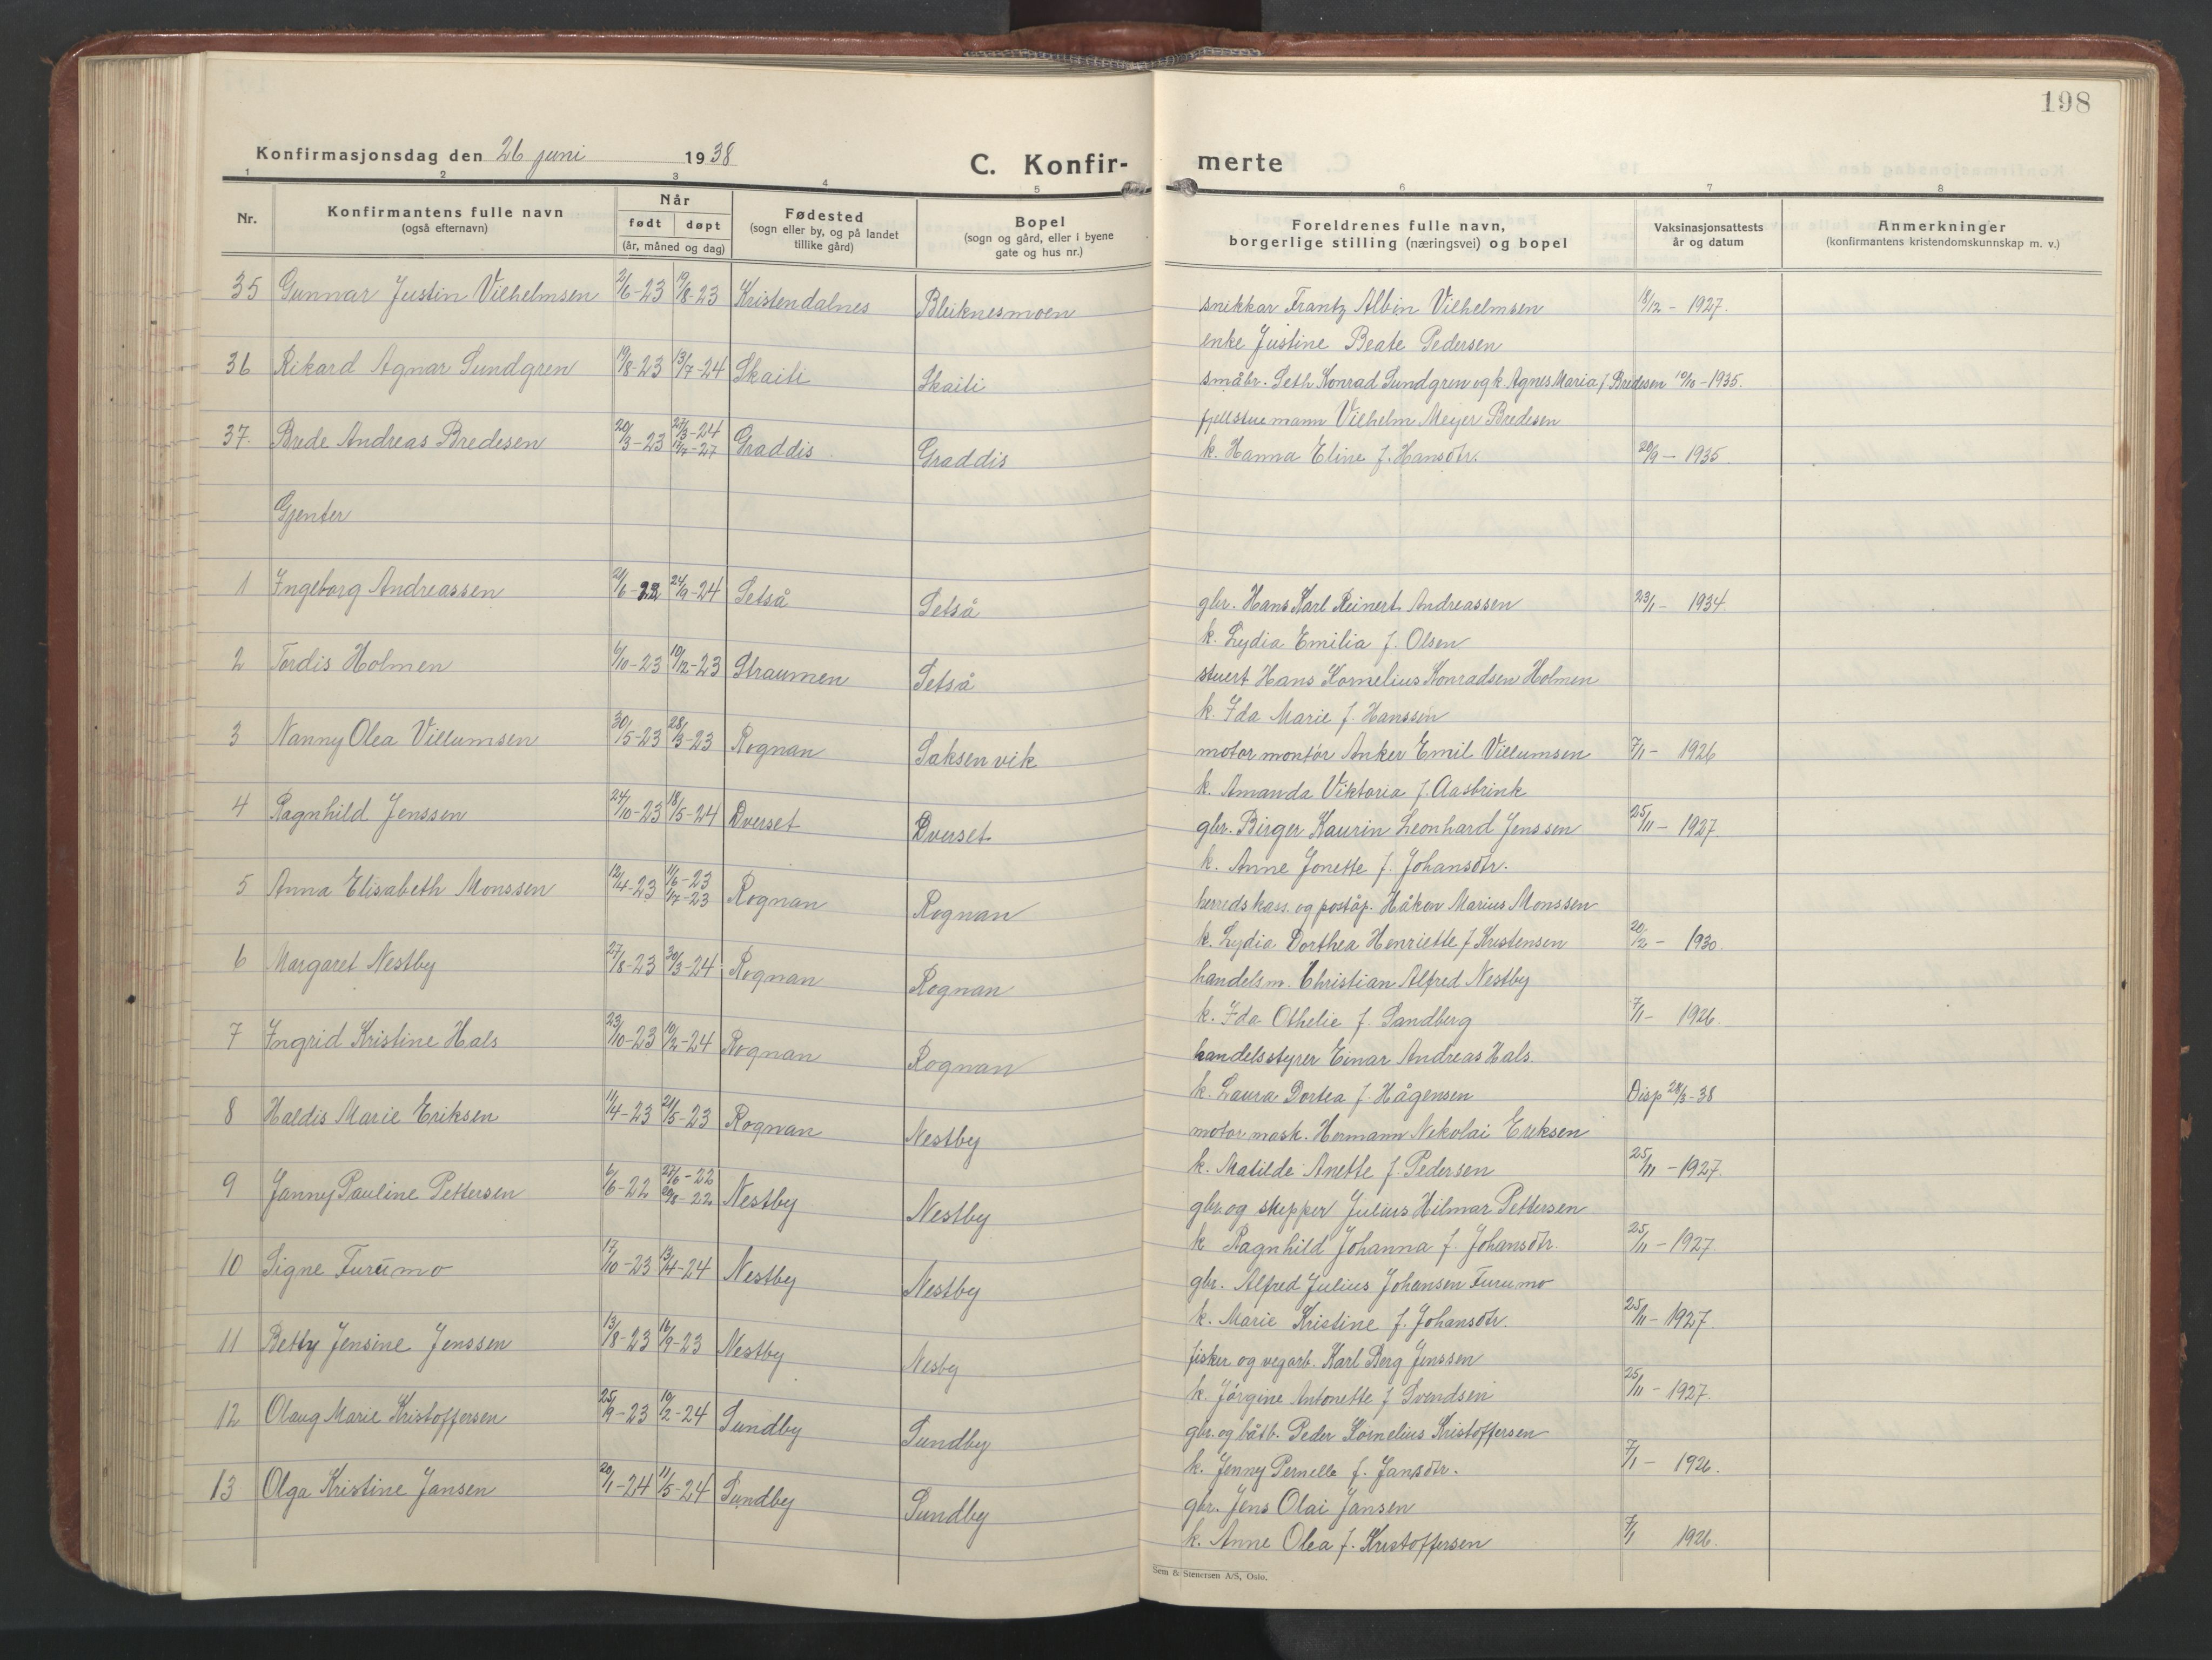 198
Konfirmasjonsdag den 26 juni 1938
C. Konfir-
merte
1 2 3 4 5 6 7 8
Nr.
Konfirmantens fulle navn
(også efternavn)
Når
født døpt
(år, måned og dag)
Fødested
(sogn eller by, og på landet
tillike gård)
Bopel
(sogn og gård, eller i byene
gate og hus nr.)
Foreldrenes fulle navn,
borgerlige stilling (næringsvei) og bopel
Vaksinasjonsattests
år og datum
Anmerkninger
(konfirmantens kristendomskunnskap m. v.)
35 Gunnar Justin Vilhelmsen 2/6-23 19/8-23 Kristendalnes Bleiknesmoen snikkar Frantz Albin Vilhelmsen 18/12 - 1927.
enke Justine Beate Pedersen
36 Rikard Agnar Sundgren 19/8-23 13/7-24 Skaiti Skaiti småbr. Seth Konrad Sundgren og k. Agnes Maria f. Bredesen 10/10 - 1935.
fjellstuemann Vilhelm Meyer Bredesen
37. Brede Andreas Bredesen 20/3-23 27/3-24 17/7-27 Graddis Graddis k. Hanna Eline f. Hansdtr. 20/9 - 1935.
Gjenter
1 Ingeborg Andreassen 21/6-22 24/9-24 Setså Setså gbr. Hans Karl Reinert Andreassen 23/1 - 1934.
k. Lydia Emilia f. Olsen
2 Tordis Holmen 6/10-23 10/12-23 Straumen Setså stuert Hans Kornelius Konradsen Holmen
k. Ida Marie f. Hanssen
3 Nanny Olea Villumsen 30/5-23 28/3-23 Rognan Saksenvik motormontør Anker Emil Villumsen 7/1 - 1926
k. Amanda Viktoria f. Aasbrink
4 Ragnhild Jenssen 24/10-23 18/5-24 Dverset Dverset gbr. Birger Kaurin Leonhard Jenssen 25/11 - 1927.
k. Anne Jonette f. Johansdtr.
5 Anna Elisabeth Monssen 12/4-23 11/6-23 1/7-23 Rognan Rognan herredskass. og poståp. Håkon Marius Monssen
k. Lydia Dorthea Henriette f. Kristensen 20/2 - 1930.
6 Margaret Nestby 27/8-23 30/3-24 Rognan Rognan handelsm. Christian Alfred Nestby
k. Ida Othelie f. Sandberg 7/1 - 1926.
7 Ingrid Kristine Hals 23/10-23 10/2-24 Rognan Rognan handelsstyrer Einar Andreas Hals
k. Laura Dortea f. Hågensen Disp 28/3-38
8 Haldis Marie Eriksen 11/4-23 21/5-23 Rognan Nestby motormask. Hermann Nikolai Eriksen
k. Matilde Anette f. Pedersen 25/11 - 1927.
9 Janny Pauline Pettersen 6/6-22 27/6-22 20/8-22 Nestby Nestby gbr. og skipper Julius Hilmar Pettersen
k Ragnhild Johanna f. Johansdtr. 25/11 - 1927
10 Signe Furumo 17/10-23 13/4-24 Nestby Nestby gbr. Alfred Julius Johansen Furumo
k. Marie Kristine f. Johansdtr. 25/11 - 1927.
11 Betty Jensine Jenssen 13/8-23 16/9-23 Nestby Nesby fisker og vegarb. Karl Berg Jenssen
k. Jørgine Antonette f Svendsen 25/11 - 1927.
12 Olaug Marie Kristoffersen 25/9-23 10/2-24 Sundby Sundby gbr. og båtb. Peder Kornelius Kristoffersen
k. Jenny Pernelle f. Jansdtr. 7/1 - 1926.
13 Olga Kristine Jansen 20/1-24 11/5-24 Sundby Sundby gbr. Jens Olai Jansen
k. Anne Olea f. Kristoffersen 7/1 1926.
Sem & Stenersen A/S, Oslo.